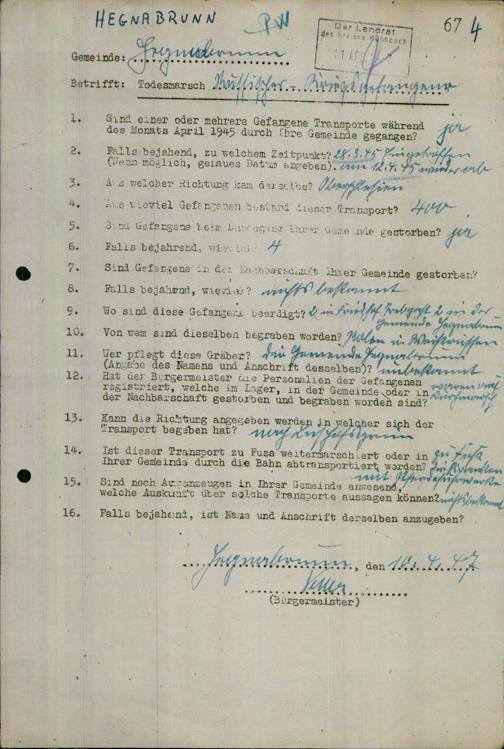 HEGNABRUNN PW 67 4
Der Landrat
des Kreises Kulmbach
Gemeinde: Hegnabrunn
Betrifft: Todesmarsch Russischer-Kriegsgefangener
1. Sind einer oder mehrere Gefangene Transporte während ja
des Monats April 1945 durch Ihre Gemeinde gegangen?
2. Falls bejahend, zu welchem Zeitpunkt? 28.3.45 Eingetroffen
(Wenn möglich, genaues Datum angeben). am 12.4.45 wieder ab
3. Aus welcher Richtung kam derselbe? Oberschlesien
4. Aus wieviel Gefangenen bestand dieser Transport? 400
5. Sind Gefangene beim Durchgang Ihrer Gemeinde gestorben? ja
6. Falls bejahrend, wieviel? 4
7. Sind Gefangene in der Nachbarschaft Ihrer Gemeinde gestorben?
8. Falls bejahend, wieviel? nichts bekannt
9. Wo sind diese Gefangene beerdigt? 2 in Friedhof 2 in der
Gemeinde Hegnabrunn
10. Von wem sind dieselben begraben worden? Polen u. Weißrussen
11. Wer pflegt diese Gräber? die Gemeinde Hegnabrunn
(Angabe des Namens und Anschrift desselben)? unbekannt
12. Hat der Bürgermeister die Personalien der Gefangenen
registriert, welche im Lager, in der Gemeinde oder in waren auf
der Nachbarschaft gestorben und begraben worden sind? Durchmarsch
13. Kann die Richtung angegeben werden in welcher sich der
Transport begeben hat? nach
14. Ist dieser Transport zu Fuss weitermarschiert oder in zu Fuß
Ihrer Gemeinde durch die Bahn abtransportiert worden?
mit
15. Sind noch Augenzeugen in Ihrer Gemeinde anwesend,
welche Auskunft über solche Transporte aussagen können? nichts bekannt
16. Falls bejahend, ist Name und Anschrift derselben anzugeben?
Hegnabrunn, den 10.4.47
(Bürgermeister)